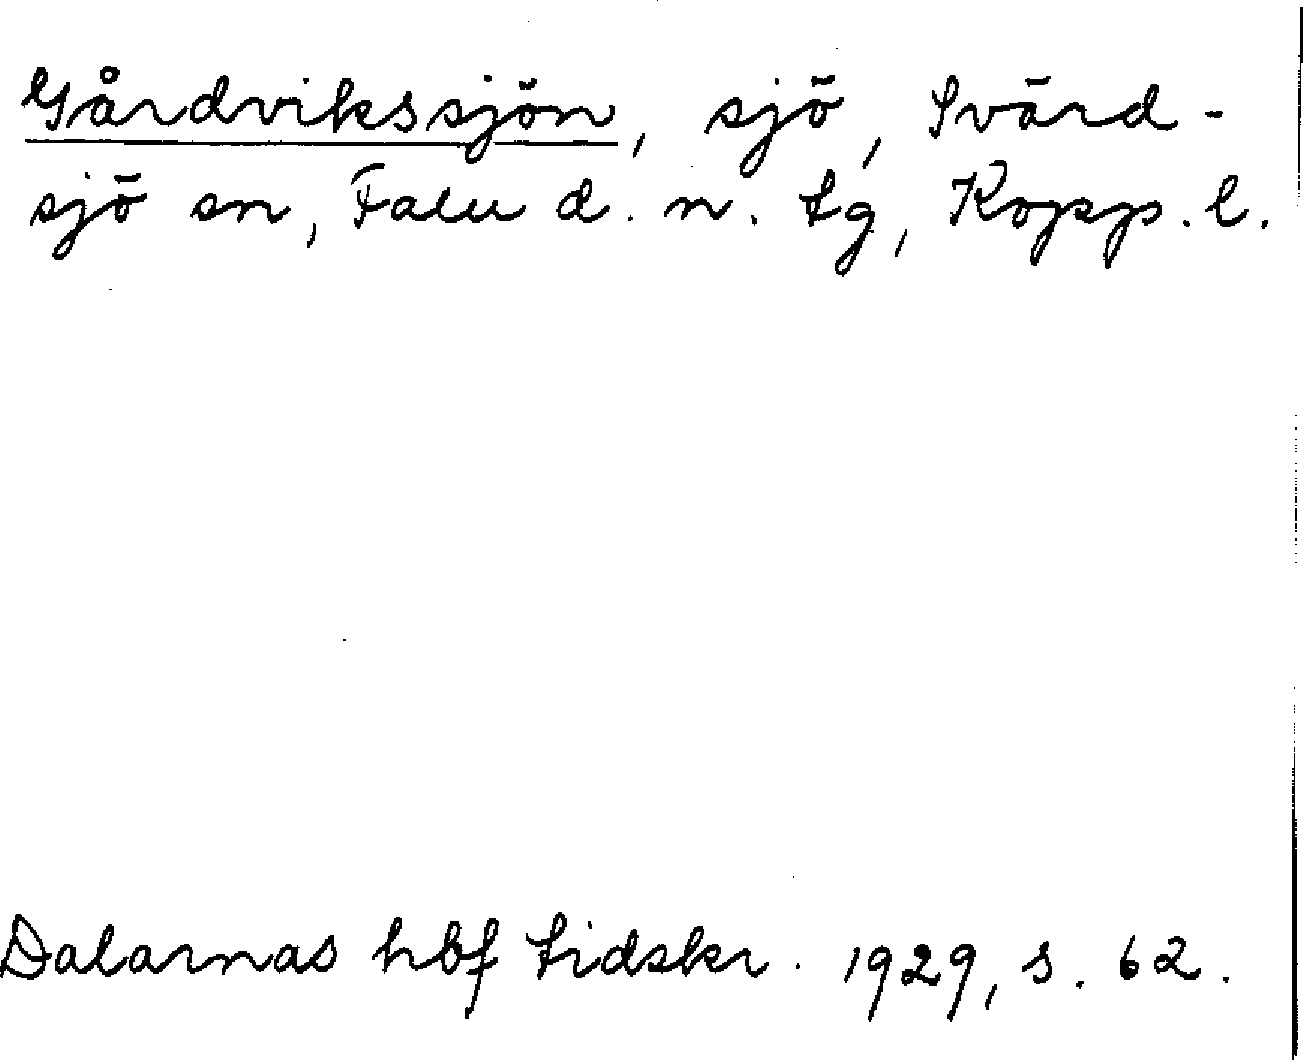 Gårdvikssjön, sjö, Svärd-
sjö sn, Falu d. n. tg, Kopp. l.
Dalarnas hbf tidskr. 1929, s. 62.